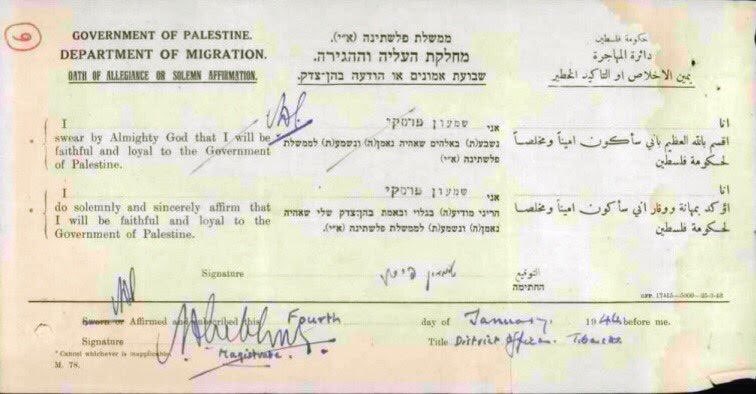 6
GOVERNMENT OF PALESTINE.
DEPARTMENT OF MIGRATION.
OATH OF ALLEGIANCE OR SOLEMN AFFIRMATION.
ממשלת פלשתינה (א״י).
מחלקת העליה וההגירה.
שבועת אמונים או הודעה בהן־צדק.
حكومة فلسطين
دائرة المهاجرة
يمين الاخلاص او التاكيد الخطير
I
swear by Almighty God that I will be
faithful and loyal to the Government
of Palestine.
אני שמעון פרסקי
נשבע(ת) באלהים שאהיה נאמן(ה) ונשמע(ת) לממשלת
פלשתינה (א״י)
انا
اقسم بالله العظيم باني سأكون اميناً ومخلصاً
لحكومة فلسطين
I
do solemnly and sincerely affirm that
I will be faithful and loyal to the
Government of Palestine.
אני שמעון פרסקי
הריני מודיע(ה) בגלוי ובאמת בהן־צדק שלי שאהיה
נאמן(ה) ונשמע(ת) לממשלת פלשתינה (א״י)
انا
اؤكد بمهانة ووقار اني سأكون اميناً ومخلصاً
لحكومة فلسطين
Signature
التوقيع
החתימה
GPP. 17415—5000—25-3-43
* Sworn or Affirmed and subscribed this Fourth day of January 1944 before me.
Signature
Magistrate.
Title District Officer. Tiberias
* Cancel whichever is inapplicable.
M. 78.